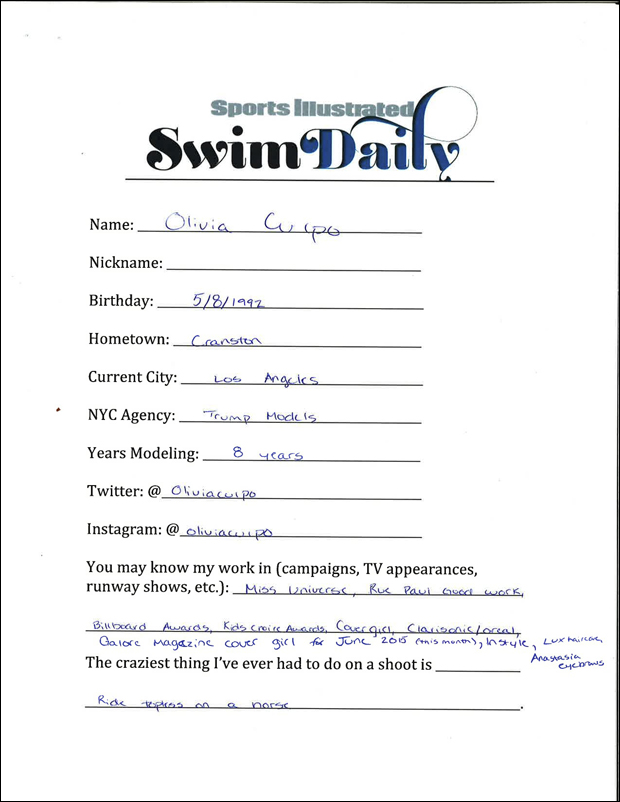 Sports Illustrated
Swim Daily
Name: Olivia Culpo
Nickname:
Birthday: 5/8/1992
Hometown: Cranston
Current City: Los Angeles
NYC Agency: Trump Models
Years Modeling: 8 years
Twitter: @ Oliviaculpo
Instagram: @ oliviaculpo
You may know my work in (campaigns, TV appearances,
runway shows, etc.): Miss Universe, Rue Paul Good work,
Billboard Awards, Kids Choice Awards, Covergirl, Clarisonic/loreal,
Galore Magazine cover girl for June 2015 (this month), Instyle, Luxhaircare,
Anastasia
eyebrows
The craziest thing I've ever had to do on a shoot is
Ride topless on a horse.